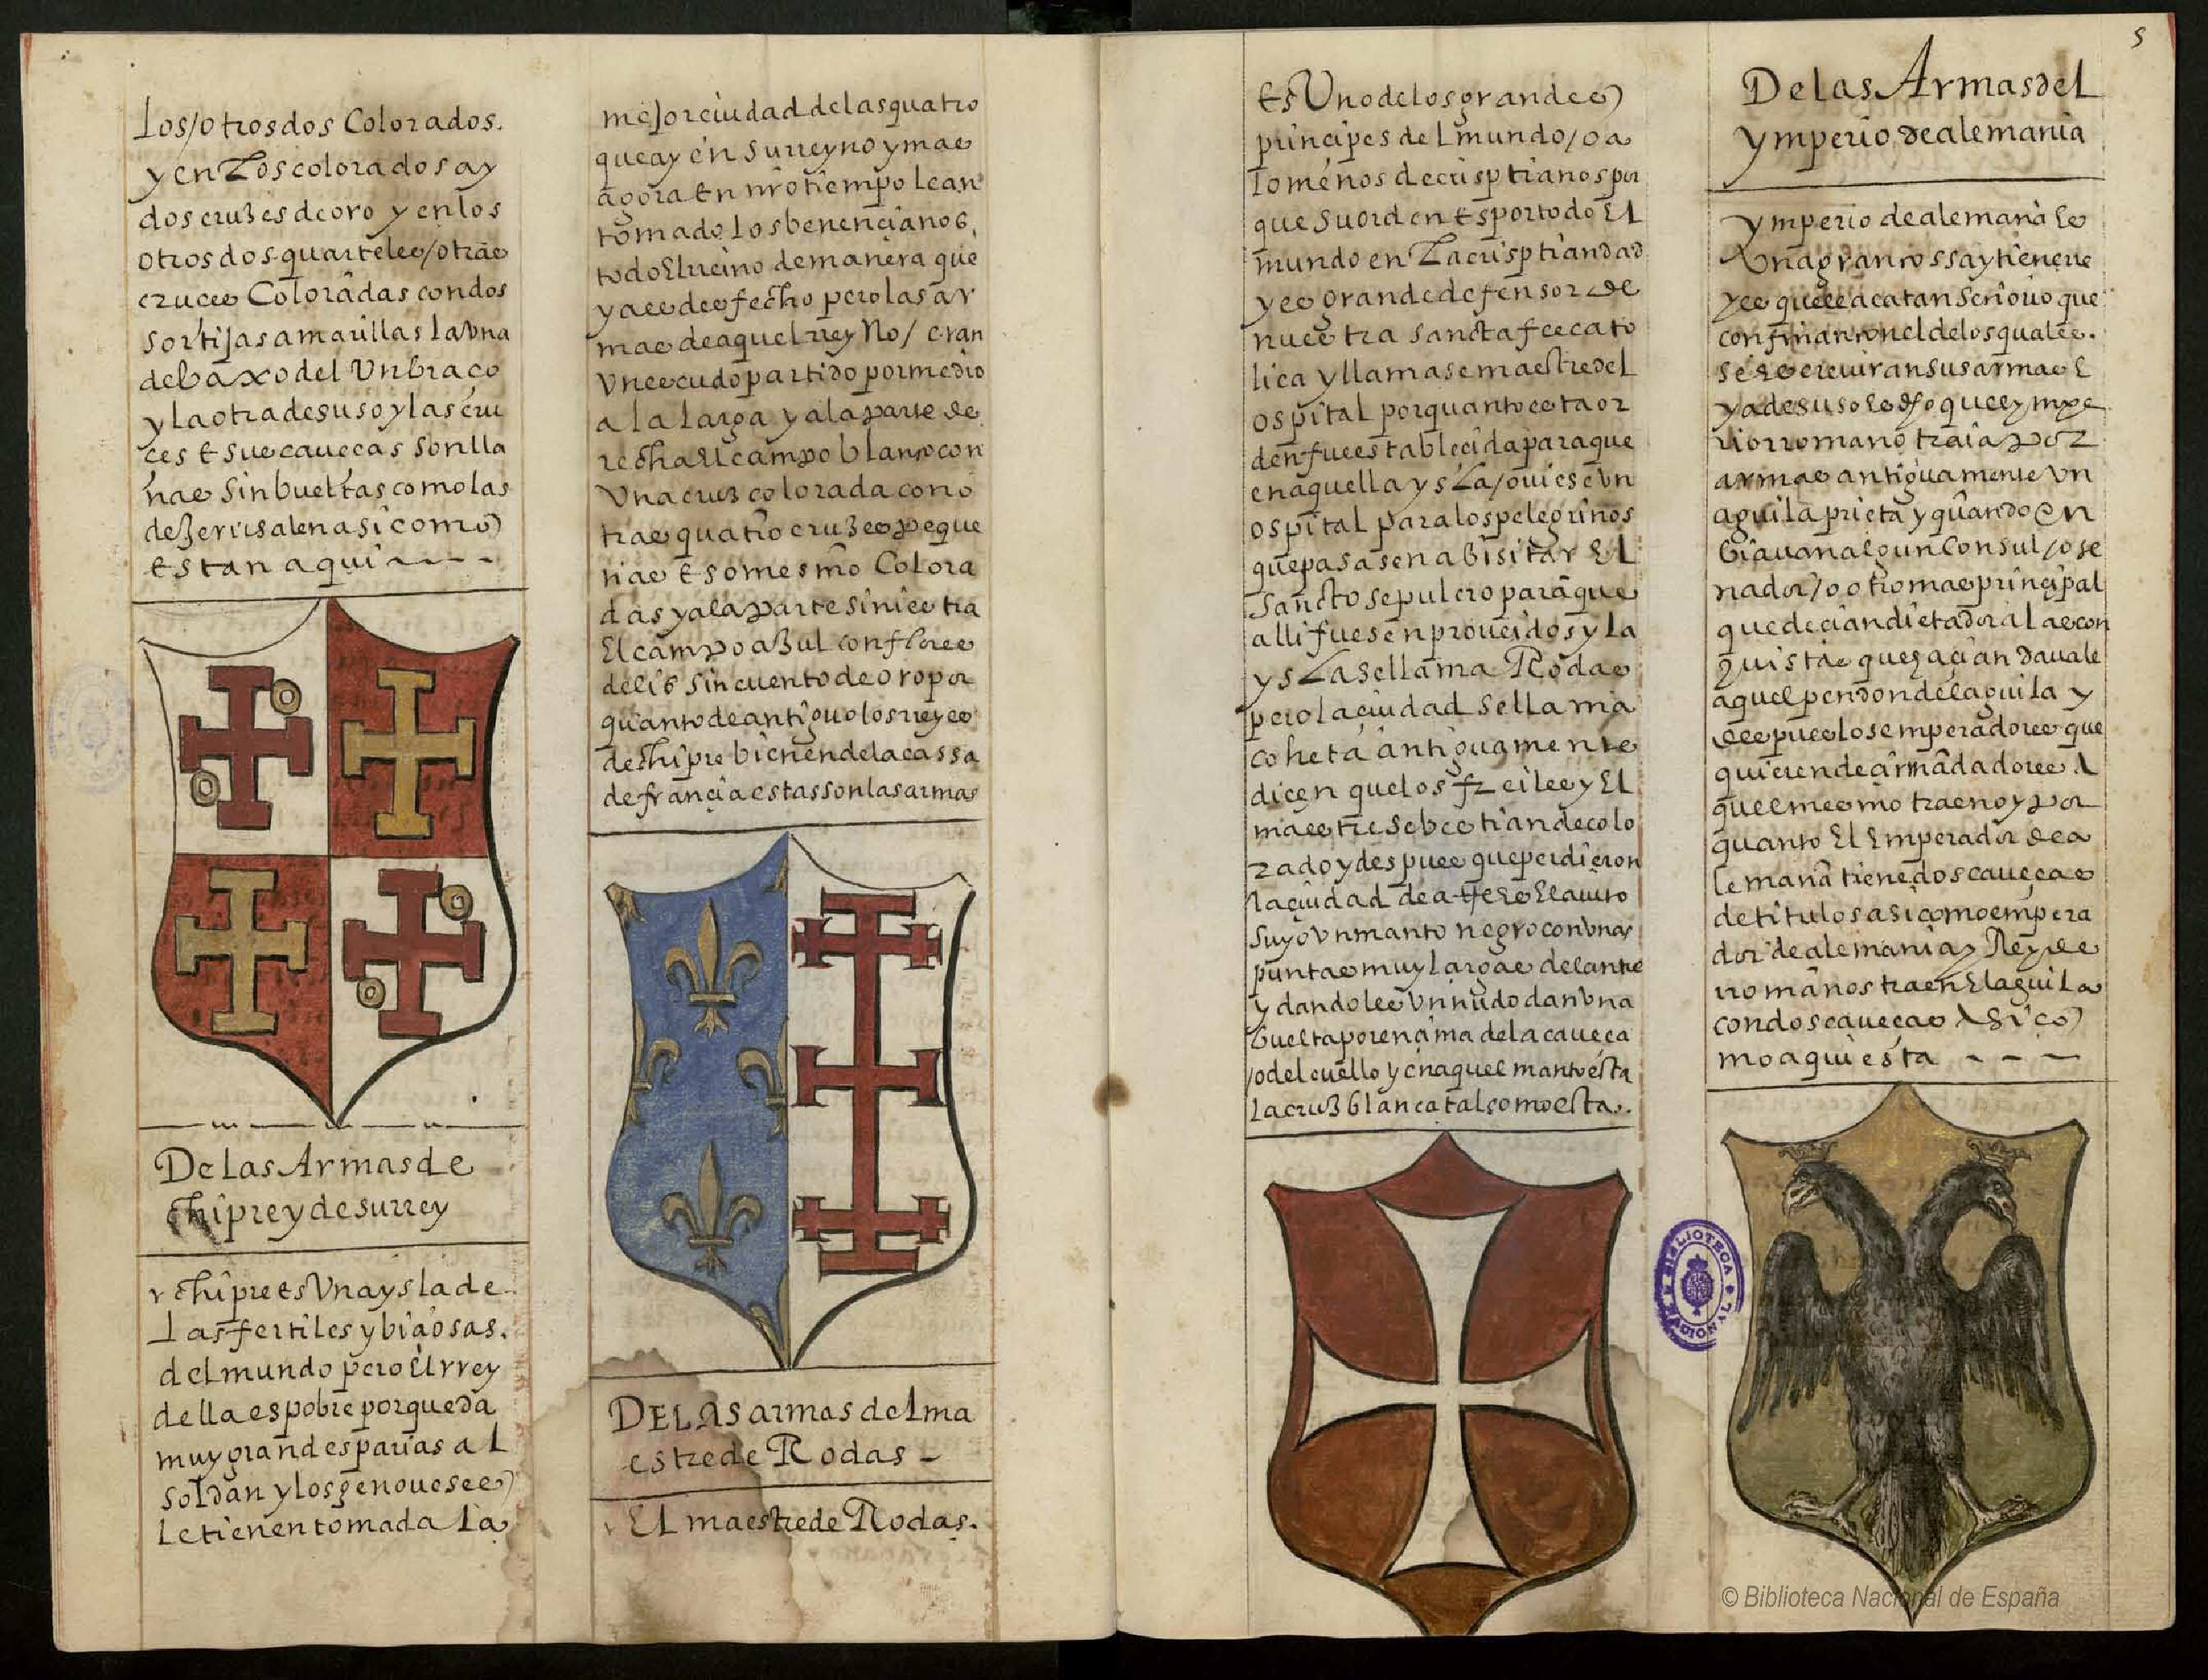 los/otros dos Colorados.
y en los colorados ay
dos cruzes de oro y en los
otros dos quarteles/otras
cruces Coloradas con dos
sortijas amarillas la vna
debaxo del Vn braço
y la otra de suso y las cru
ces E sus caueças son lla
nas sin bueltas como las
de Jerusalen asi como
estan aqui
De las Armas de
chipre y de su rrey
chipre es Vna ysla de
las fertiles y biciosas.
del mundo pero El rrey
della es pobre porque da
muy grandes parias al
soldan y los genoueses
le tienen tomada la
mejor ciudad de las quatro
que ay en su rreyno y mas
agora En nro tiempo le an
tomado los benencianos,
todo El rreino de manera que
ya es desfecho pero las ar
mas de aquel rrey No/ eran
Vn escudo partido por medio
a la larga y a la parte de
recha El campo blanco con
Vna cruz colorada con o
tras quatro cruzes peque
ñas Esomesmo Colora
das y a la parte siniestra
El campo azul con flores
de lis sin cuento de oro por
quanto de antiguo los rreyes
de chipre bienen de la cassa
de françia estas son las armas
DE LAS armas del ma
estre de Rodas
El maestre de Rodas.
Es Vno de los grandes
principes del mundo/o a
lo menos de crisptianos por
que su orden Es por todo El
mundo en La crisptiandad
y es grande defensor de
nuestra sancta fee cato
lica y llamase maestre del
ospital por quanto esta or
den fue establecida para que
en aquella ysLa/ouiese vn
ospital para los pelegrinos
que pasasen a bisitar El
sancto sepulcro para que
alli fuesen proueidos y la
ysLa se llama Rodas
pero la ciudad se llama
coheta antiguamente
dicen que los freiles y El
maestre se bestian de colo
rado y despues que perdieron
la ciudad de El auito
suyo vn manto negro con vnas
puntas muy largas delante
y dandoles vn nudo dan vna
buelta por encima de la caueça
/o del cuello y en aquel manto esta
la cruz blanca tal como esta..
5
De las Armas del
ymperio de alemania
ymperio de alemaña Es
Vna gran cossa y tiene rre
yes que le acatan señorio que
confinan con el de los quales.
se escreuiran sus armas E
ya de suso Es dho que el ympe
rio rromano traia por
armas antiguamente vn
aguila prieta y quando en
biauan algun Consul/o se
nador/o otro mas principal
que decian dictador a las con
quistas que haçian dauale
aquel pendon del aguila y
despues los emperadores que
quieren de armadadores
quel mesmo traen oy por
quanto El Emperador de a
lemaña tiene dos caueças
de titulos asi como empera
dor de alemania y Rey de
rromanos traen El aguila
con dos caueças Asi co
mo aqui esta
BIBLIOTECA NACIONAL
© Biblioteca Nacional de España